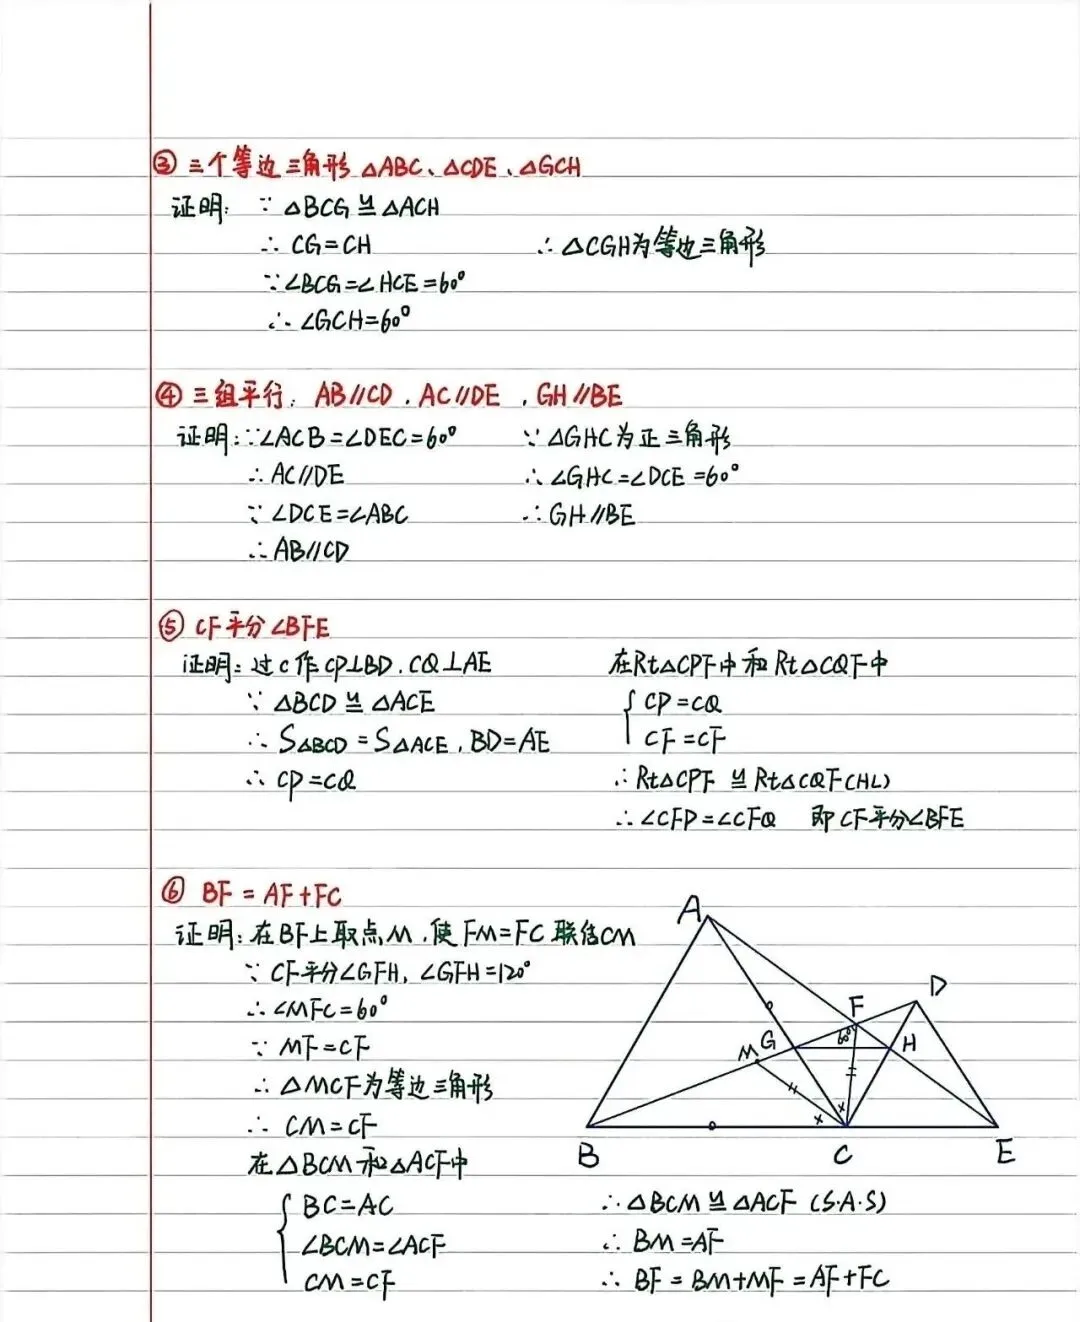 ③ 三个等边三角形 △ABC、△CDE、△GCH
证明: ∵ △BCG≌△ACH
∴ CG=CH
∴ △CGH为等边三角形
∵∠BCG=∠HCE=60°
∴ ∠GCH=60°
④ 三组平行: AB//CD, AC//DE, GH//BE
证明:∵∠ACB=∠DEC=60°
∴ AC//DE
∵ ∠DCE=∠ABC
∴ AB//CD
∵ △GHC为正三角形
∴ ∠GHC=∠DCE=60°
∴ GH//BE
⑤ CF平分∠BFE
证明: 过C作CP⊥BD, CQ⊥AE
∵ △BCD≌△ACE
∴ S△BCD=S△ACE, BD=AE
∴ CP=CQ
在Rt△CPF中和Rt△CQF中
{ CP=CQ
CF=CF
∴ Rt△CPF≌Rt△CQF(HL)
∴ ∠CFP=∠CFQ 即CF平分∠BFE
⑥ BF=AF+FC
证明: 在BF上取点M, 使FM=FC 联结CM
∵ CF平分∠GFH, ∠GFH=120°
∴ ∠MFC=60°
∵ MF=CF
∴ △MCF为等边三角形
∴ CM=CF
在△BCM和△ACF中
{ BC=AC
∠BCM=∠ACF
CM=CF
∴ △BCM≌△ACF (S.A.S)
∴ BM=AF
∴ BF=BM+MF=AF+FC
A
D
F
60°
M G
H
B
C
E